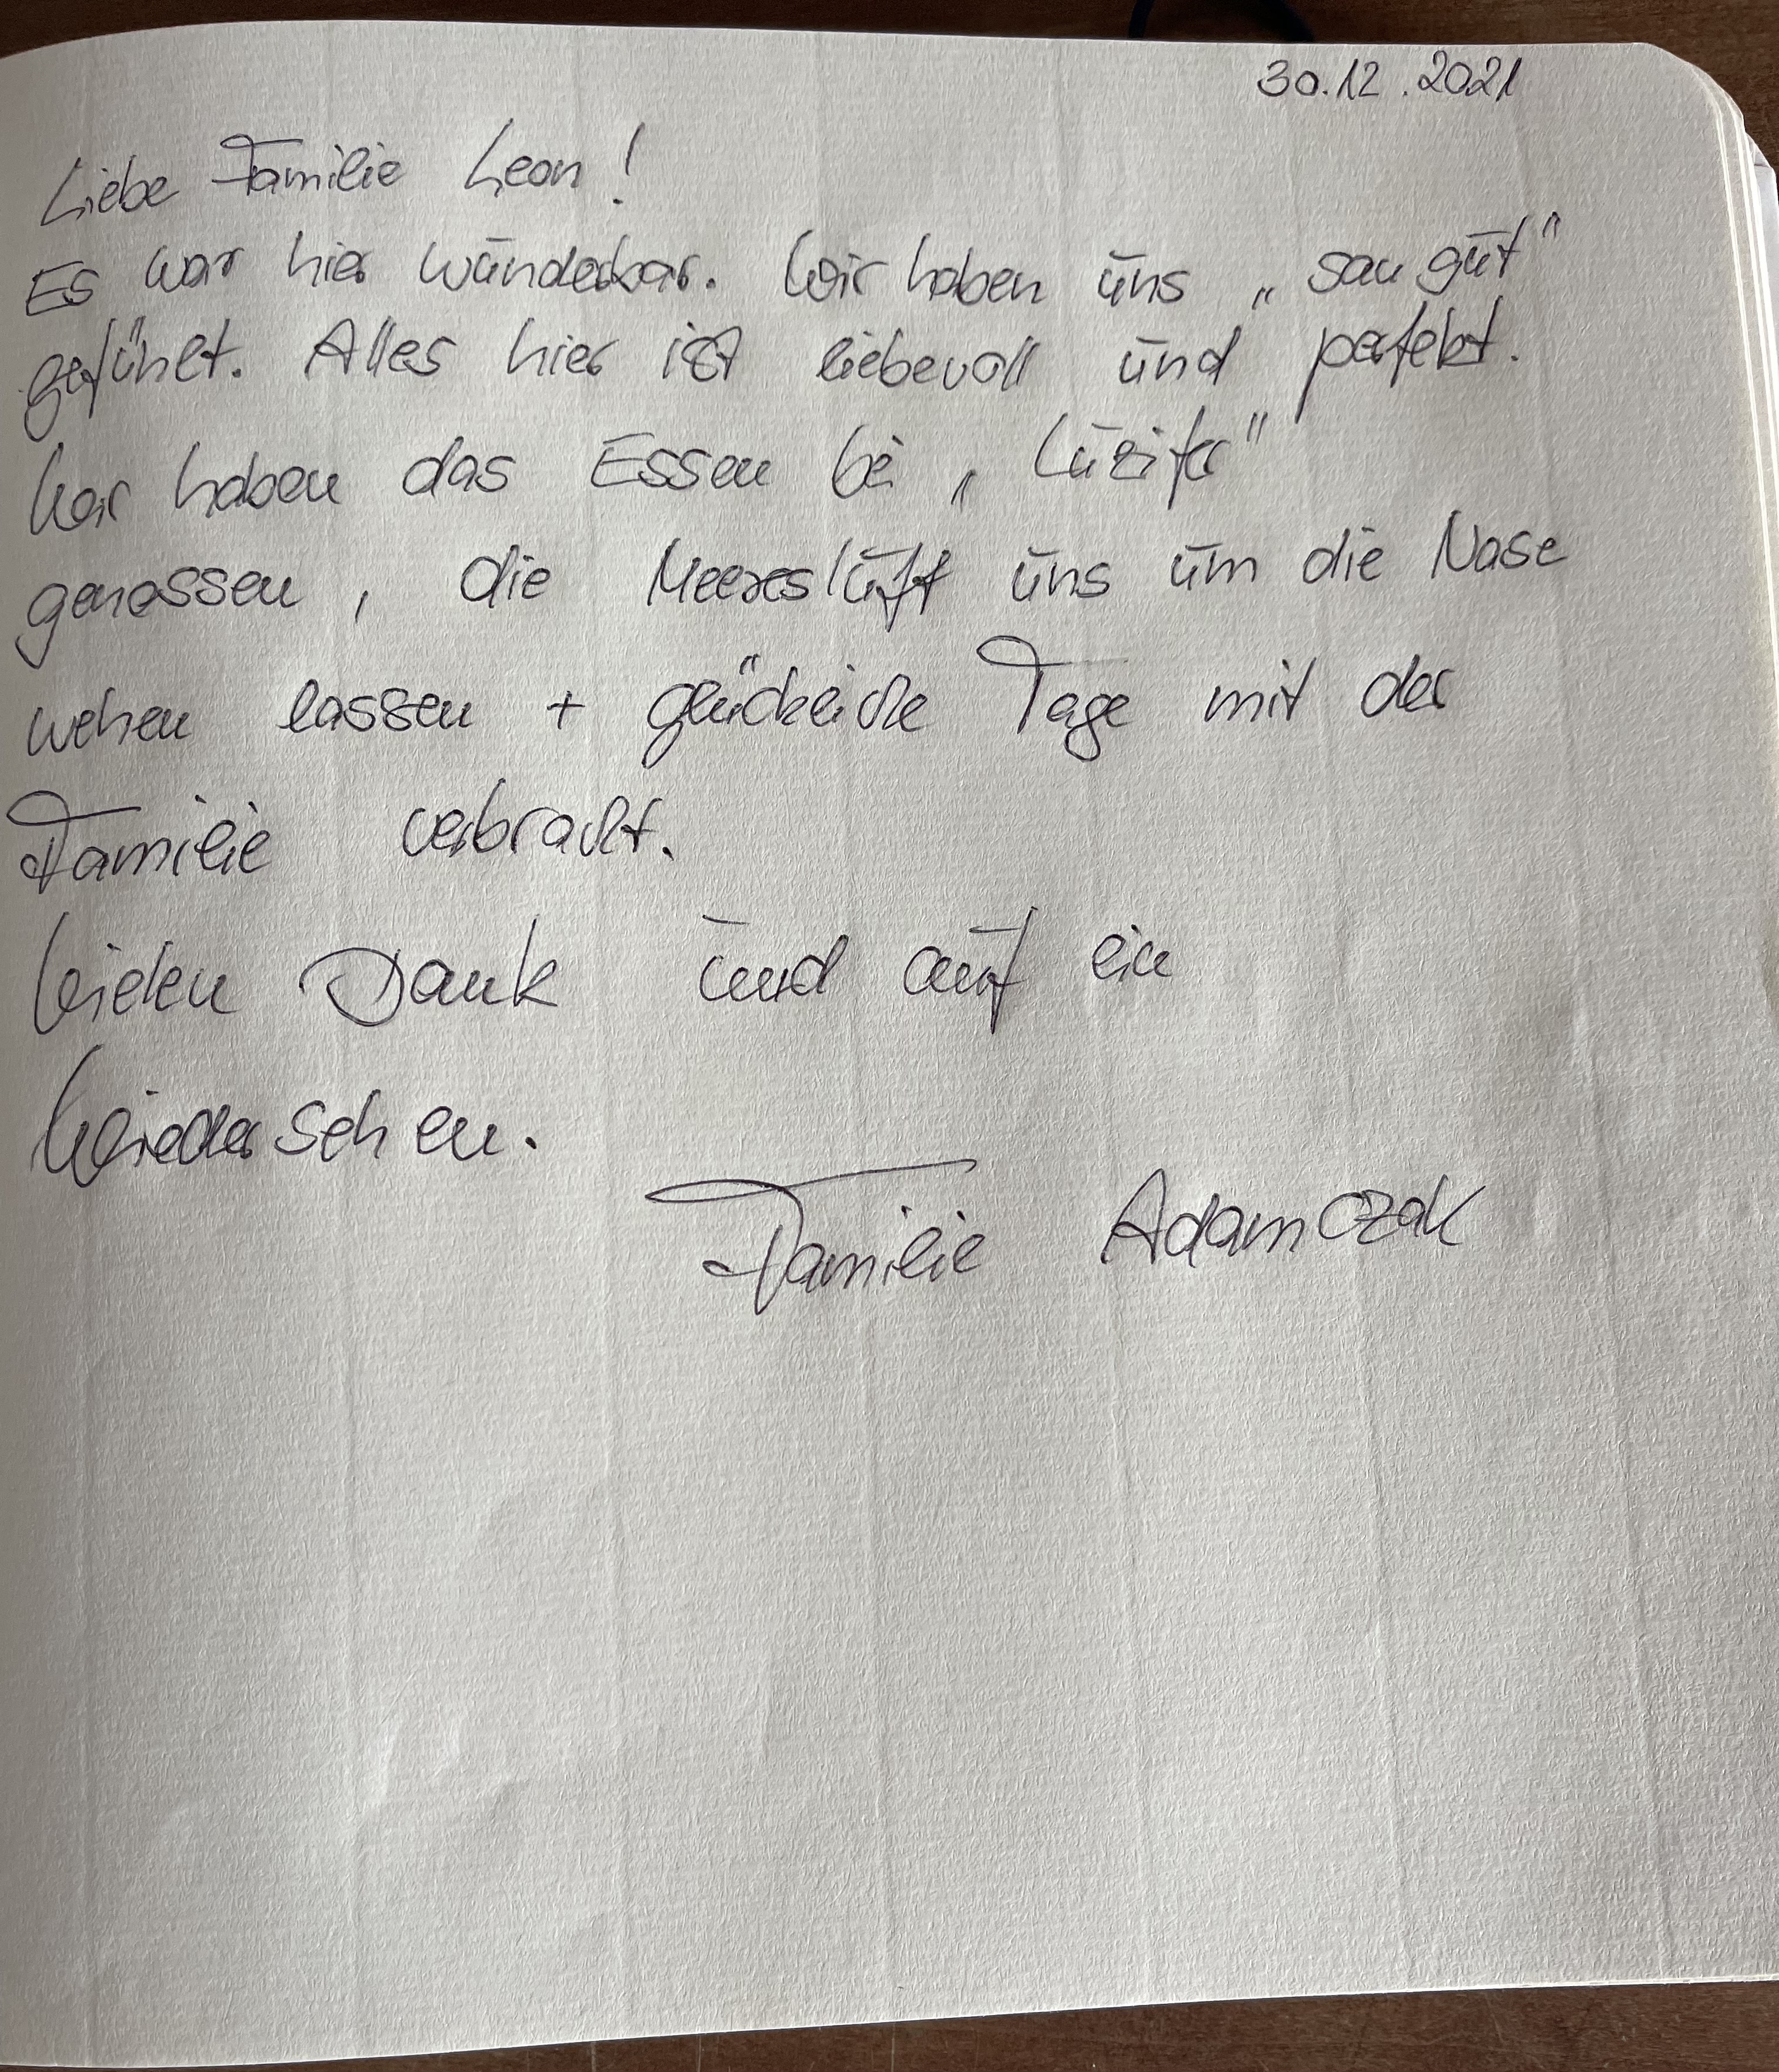 30.12.2021
Liebe Familie Leon!
Es war hier wunderbar. Wir haben uns „sau gut"
gefühlt. Alles hier ist liebevoll und perfekt.
Wir haben das Essen bei „Luzifer"
genossen, die Meeresluft uns um die Nase
wehen lassen + glückliche Tage mit der
Familie verbracht.
Vielen Dank und auf ein
Wiedersehen.
Familie Adamczak